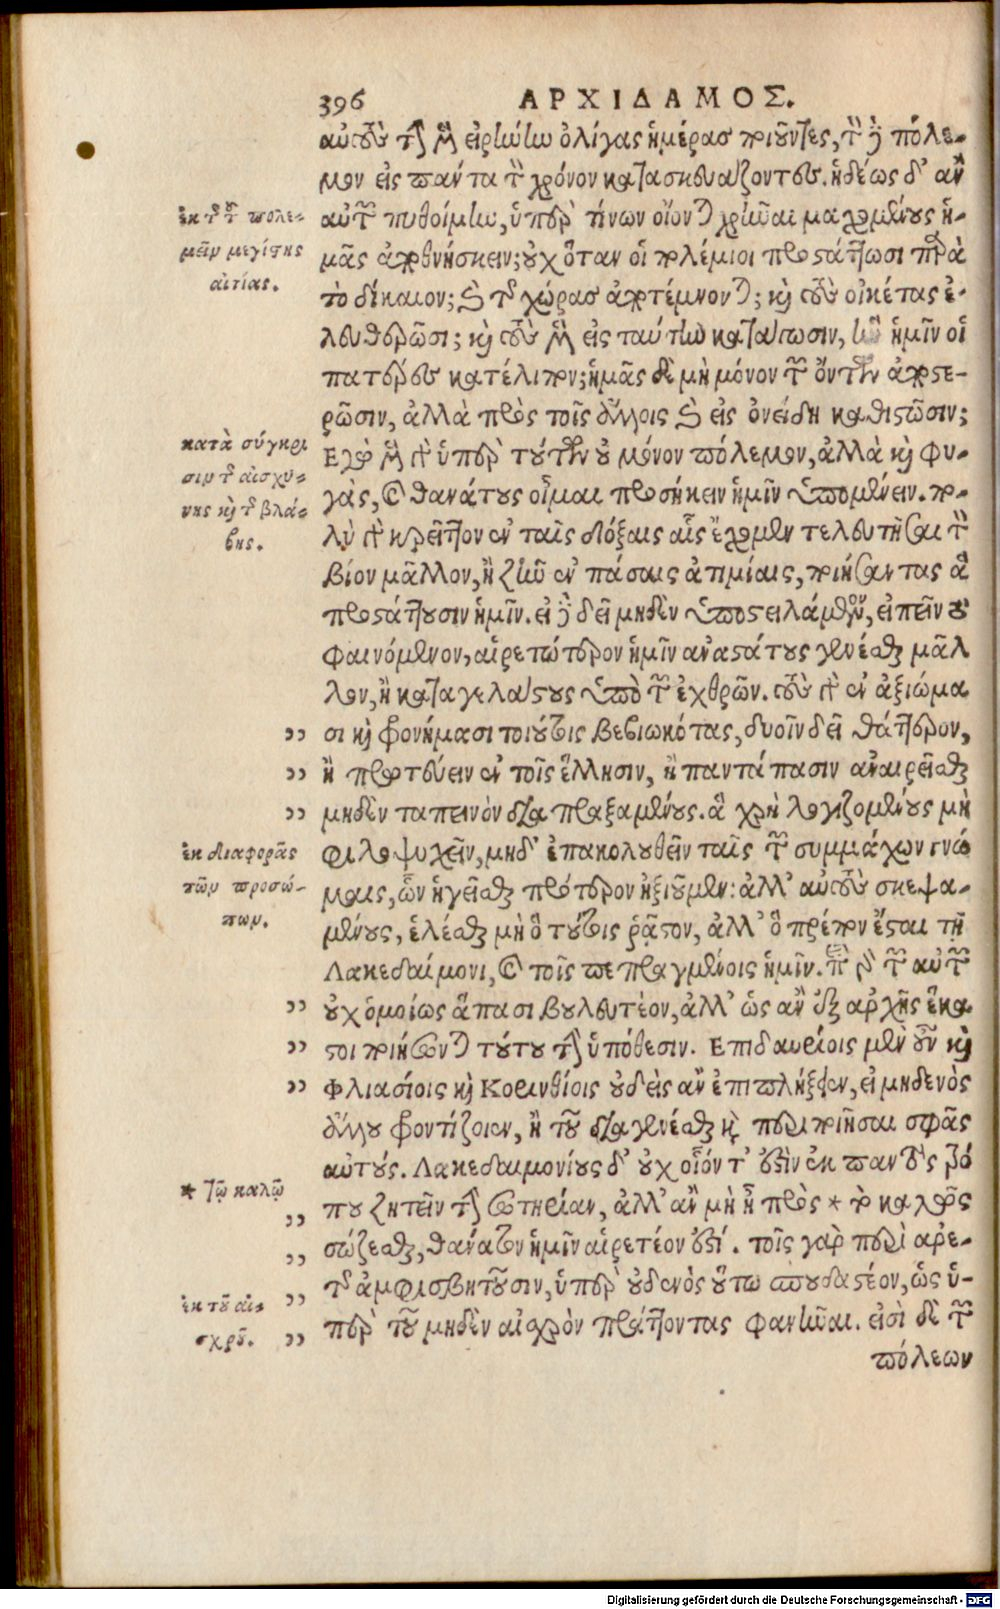 396 ΑΡΧΙΔΑΜΟΣ.
αὐτοὺς τὴν μὲν εἰρήνην ὀλίγας ἡμέρας ποιοῦντες, τὸν δὲ πόλε-
μον εἰς πάντα τὸν χρόνον κατασκευάζοντες. ἡδέως δ' ἂν
ἐκ τοῦ τῶν πολε-
αὐτῶν πυθοίμην, ὑπὲρ τίνων οἴονται χρῆναι μαχομένους ἡ-
μεῖν μεγίστης
μᾶς ἀποθνήσκειν; οὐχ ὅταν οἱ πολέμιοι προστάττωσι παρὰ
αἰτίας.
τὸ δίκαιον; καὶ τῆς χώρας ἀποτέμνονται; καὶ τοὺς οἰκέτας ἐ-
λευθερῶσι; καὶ τοὺς μὲν εἰς ταύτην κατάγωσιν, ἣν ἡμῖν οἱ
πατέρες κατέλιπον; ἡμᾶς δὲ μὴ μόνον τῶν ὄντων ἀποστε-
ρῶσιν, ἀλλὰ πρὸς τοῖς ἄλλοις καὶ εἰς ὀνείδη καθιστῶσιν;
κατὰ σύγκρι
Εγὼ μὲν γὰρ ὑπὲρ τούτων οὐ μόνον πόλεμον, ἀλλὰ καὶ φυ-
σιν τῆς αἰσχύ-
γὰς, καὶ θανάτους οἶμαι προσήκειν ἡμῖν ὑπομένειν. πο-
νης καὶ τῆς βλά-
βης.
λὺ γὰρ κρεῖττον ἐν ταῖς δόξαις αἷς ἔχομεν τελευτῆσαι τὸν
βίον μᾶλλον, ἢ ζῆν ἐν πάσαις ἀτιμίαις, ποιήσαντας ἃ
προστάττουσιν ἡμῖν. εἰ δὲ δεῖ μηδὲν ὑποστειλάμενον, εἰπεῖν τὸ
φαινόμενον, αἱρετώτερον ἡμῖν ἀναστάτους γενέσθαι μᾶλ
λον, ἢ καταγελάστους ὑπὸ τῶν ἐχθρῶν. τοὺς γὰρ ἐν ἀξιώμα
,, σι καὶ φρονήμασι τοιούτοις βεβιωκότας, δυοῖν δεῖ θάτερον,
,, ἢ πρωτεύειν ἐν τοῖς ἕλλησιν, ἢ παντάπασιν ἀναιρεῖσθαι
,, μηδὲν ταπεινὸν διαπραξαμένους. ἃ χρὴ λογιζομένους μὴ
ἐκ διαφορᾶς
φιλοψυχεῖν, μηδ' ἐπακολουθεῖν ταῖς τῶν συμμάχων γνώ
τῶν προσώ-
μαις, ὧν ἡγεῖσθαι πρότερον ἠξιοῦμεν: ἀλλ' αὐτοὺς σκεψα-
πων.
μένους, ἑλέσθαι μὴ ὃ τούτοις ῥᾷστον, ἀλλ' ὃ πρέπον ἔσται τῇ
Λακεδαίμονι, καὶ τοῖς πεπραγμένοις ἡμῖν. περὶ γὰρ τῶν αὐτῶν
,, οὐχ ὁμοίως ἅπασι βουλευτέον, ἀλλ' ὡς ἂν ἐξ ἀρχῆς ἕκα
,, στοι ποιήσωνται τούτου τὴν ὑπόθεσιν. Επιδαυρίοις μὲν οὖν καὶ
,, Φλιασίοις καὶ Κορινθίοις οὐδεὶς ἂν ἐπιπλήξειεν, εἰ μηδενὸς
ἄλλου φροντίζοιεν, ἢ τοῦ διαγενέσθαι καὶ περιποιῆσαι σφᾶς
αὐτούς. Λακεδαιμονίους δ' οὐχ οἷόν τ' ἐστὶν ἐκ παντὸς τρό
* τῷ καλῷ
που ζητεῖν τὴν σωτηρίαν, ἀλλ' ἂν μὴ ᾖ πρὸς * τὸ καλῶς
,, σώζεσθαι, θάνατον ἡμῖν αἱρετέον ἐστί. τοῖς γὰρ περὶ ἀρε-
,, τῆς ἀμφισβητοῦσιν, ὑπὲρ οὐδενὸς οὕτω σπουδαστέον, ὡς ὑ-
ἐκ τοῦ αἰ-
σχροῦ.
,, πὲρ τοῦ μηδὲν αἰσχρὸν πράττοντας φανῆναι. εἰσὶ δὲ τῶν
πόλεων
Digitalisierung gefördert durch die Deutsche Forschungsgemeinschaft - DFG